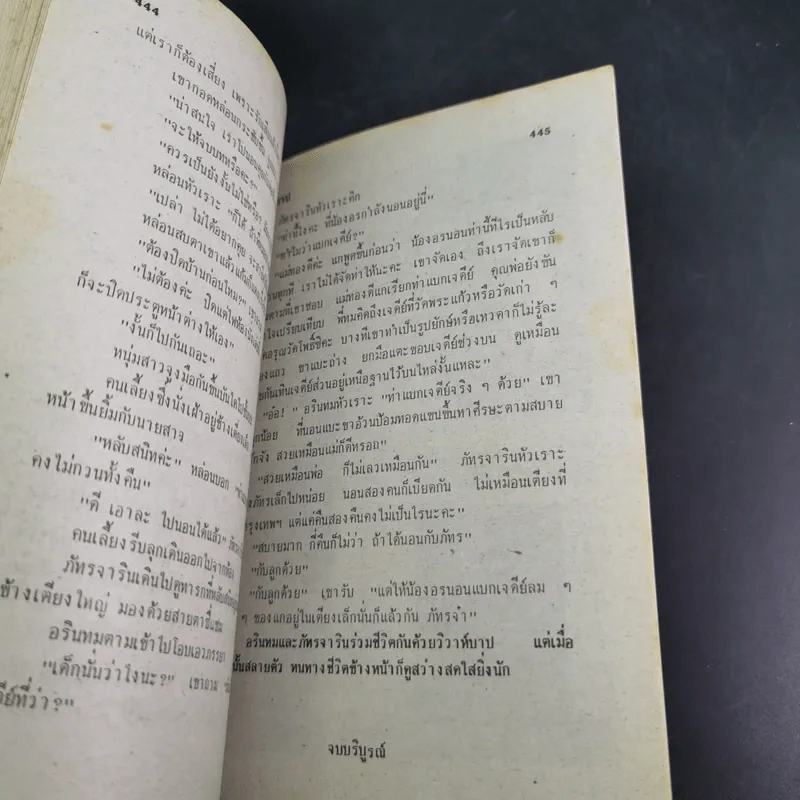 444
แต่เราก็ต้องเสี่ยง เพราะ
เขากอดหล่อนกระชับขึ้น
"น่าสนใจ เราไปนอน
"จะให้จบบทหรือคะ?"
"ควรเป็นยังงั้นไม่ใช่หรือ
หล่อนหัวเราะ "ก็ได้ ถ้า
"เปล่า ไม่ได้อยากคุย
หล่อนสบตาเขาแล้ว
"ต้องปิดบ้านก่อนไหม?"
"ไม่ต้องค่ะ ปิดแต่ไฟ
ก็จะปิดประตูหน้าต่างให้เอง"
"งั้นก็ไปกันเถอะ"
หนุ่มสาวจูงมือกันขึ้นบันได
คนเลี้ยงซึ่งนั่งเฝ้าอยู่ข้างเตียง
หน้าขึ้นยิ้มกับนายสาว
"หลับสนิทค่ะ" หล่อนบอก
คงไม่กวนทั้งคืน"
"ดี เอาละ ไปนอนได้แล้ว"
คนเลี้ยงรีบลุกเดินออกไปจาก
ภัทรจารินเดินไปดูทารกที่
ข้างเตียงใหญ่ มองด้วยสายตาชื่นชม
อรินทมตามเข้าไปโอบเอวภรรยา
"เด็กนั่นว่าไงนะ?" เขาถาม
ที่ว่า?"
445
ภัทรจารินหัวเราะคิก
"ท่านี้ไงคะ ที่น้องอรกำลังนอนอยู่นี่"
"ทำไมว่าแบกเจดีย์?"
"แม่ทองดีค่ะ แกพูดขึ้นก่อนว่า น้องอรนอนท่านี้ทีไรเป็นหลับ
ทุกที เราไม่ได้จัดท่าให้นะคะ เขาจัดเอง ถึงเราจัดเขาก็
ตามที่เขาชอบ แม่ทองดีแกเรียกท่าแบกเจดีย์ คุณพ่อยังขัน
เปรียบเทียบ พี่ทมคิดถึงเจดีย์ที่วัดพระแก้วหรือวัดเก่า ๆ
อรุณวัดโพธิ์ซิคะ บางทีเขาทำเป็นรูปยักษ์หรือเทวดาก็ไม่รู้ละ
แถว ขาแบะถ่าง ยกมือแตะขอบเจดีย์ช่วงบน ดูเหมือน
กันเทินเจดีย์ส่วนอยู่เหนือฐานไว้บนไหล่งั้นแหละ"
"อ๋อ!" อรินทมหัวเราะ "ท่าแบกเจดีย์จริง ๆ ด้วย" เขา
น้อย ที่นอนแบะขาอ้วนป้อมทอดแขนขึ้นหาศีรษะตามสบาย
จัง สวยเหมือนแม่ก็ดีหรอก"
"สวยเหมือนพ่อ ก็ไม่เลวเหมือนกัน" ภัทรจารินหัวเราะ
ภัทรเล็กไปหน่อย นอนสองคนก็เบียดกัน ไม่เหมือนเตียงที่
กรุงเทพฯ แต่แค่คืนสองคืนคงไม่เป็นไรนะคะ"
"สบายมาก กี่คืนก็ไม่ว่า ถ้าได้นอนกับภัทร"
"กับลูกด้วย"
"กับลูกด้วย" เขารับ "แต่ให้น้องอรนอนแบกเจดีย์ลม ๆ
ๆ ของแกอยู่ในเตียงเล็กนั่นก็แล้วกัน ภัทรจ๋า"
อรินทมและภัทรจารินร่วมชีวิตกันด้วยวิวาห์บาป แต่เมื่อ
นั้นสลายตัว หนทางชีวิตข้างหน้าก็ดูสว่างสดใสยิ่งนัก
จบบริบูรณ์